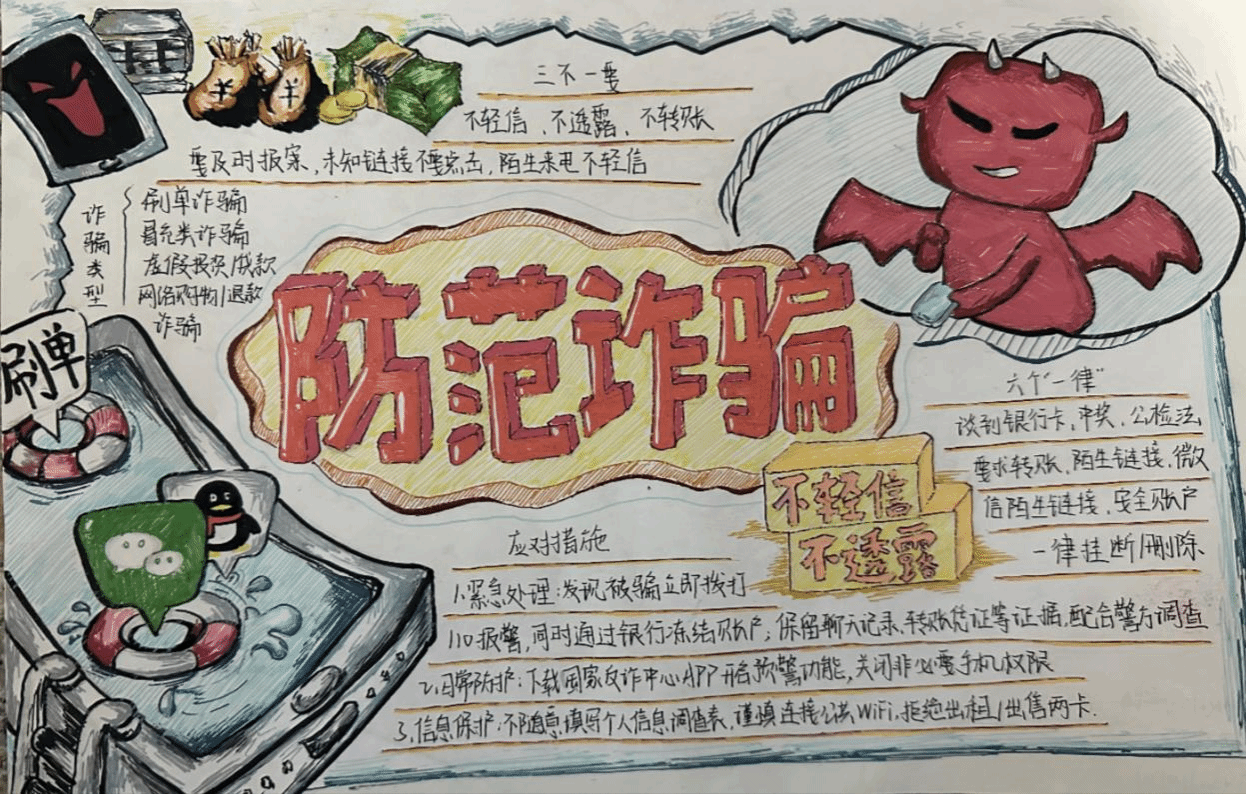 三不一要
不轻信、不透露、不转账
要及时报案、未知链接不要点击，陌生来电不轻信
诈骗类型
刷单诈骗
冒充类诈骗
虚假投资/贷款
网络购物/退款
诈骗
刷单
防范诈骗
不轻信
不透露
六个"一律"
谈到银行卡，中奖，公检法
要求转账、陌生链接、微
信陌生链接、安全账户
一律挂断/删除
应对措施
1.紧急处理：发现被骗立即拨打
110报警，同时通过银行冻结账户；保留聊天记录、转账凭证等证据，配合警方调查
2.日常防护：下载国家反诈中心APP开启预警功能，关闭非必要手机权限
3.信息保护：不随意填写个人信息调查表，谨慎连接公共WiFi，拒绝出租/出售两卡.
¥
¥